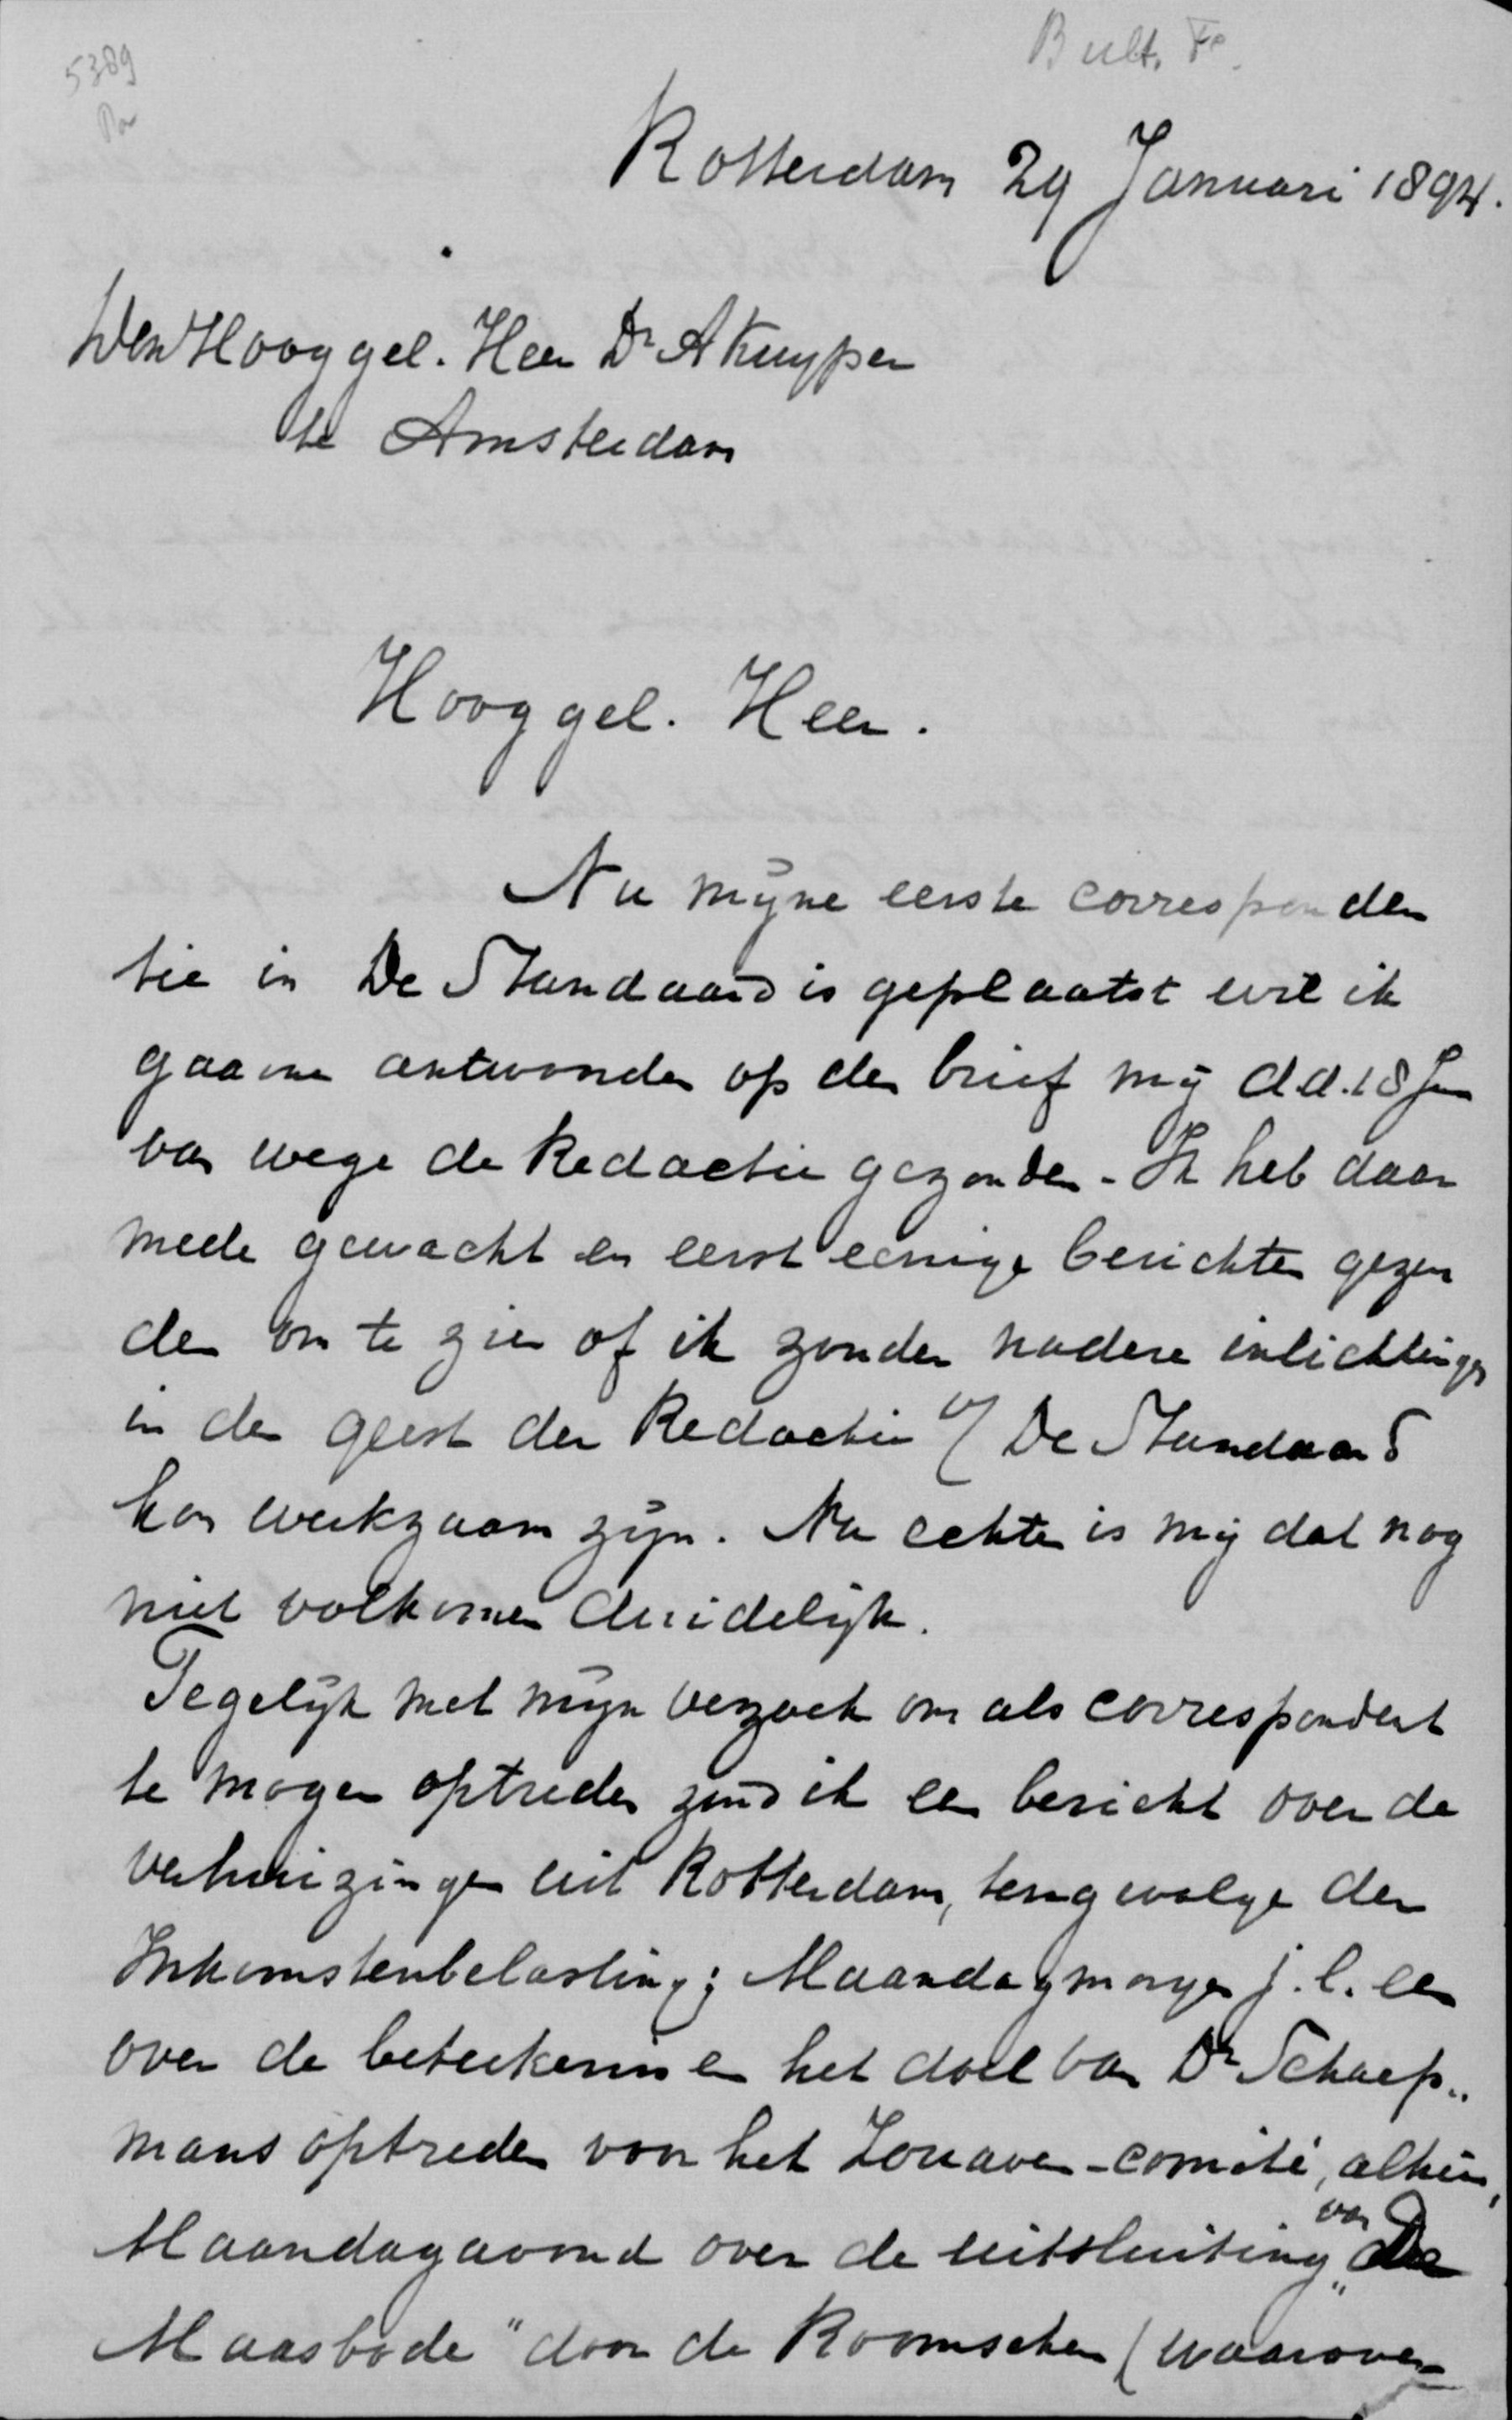 5389
Bult. Fe.
Rotterdam 29 Januari 1894.
Den Hooggel. Heer Dr A Kuyper
te Amsterdam
Hooggel. Heer.
Nu mijne eerste corresponden
tie in De Standaard is geplaatst wil ik
gaarne antwoorden op den brief mij d.d. 18 Jan
van wege de Redactie gezonden. Ik heb daar
mede gewacht en eerst eenige berichten gezon
den om te zien of ik zonder nadere inlichtingen
in den geest der Redactie v/ De Standaard
kon werkzaam zijn. Nu echter is mij dat nog
niet volkomen duidelijk.
Tegelijk met mijn verzoek om als correspondent
te mogen optreden zond ik een bericht over de
verhuizingen uit Rotterdam, tengevolge der
Inkomstenbelasting; Maandagmorgen j.l. een
over de beteekenis en het doel van Dr Schaep„
mans optreden voor het Zouaven-comité, alhier,
Maandagavond over de uitsluiting van „De
Maasbode" door de Roomschen (waarover